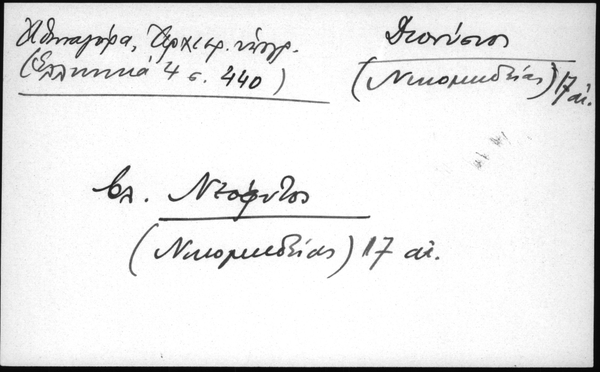 Ἀθηναγόρα, Ἀρχιερ. ὑπογρ.
(Ἑλληνικά 4 σ. 440)
Διονύσιος
(Νικομηδείας) 17 αἰ.
βλ. Νεόφυτος
(Νικομηδείας) 17 αἰ.